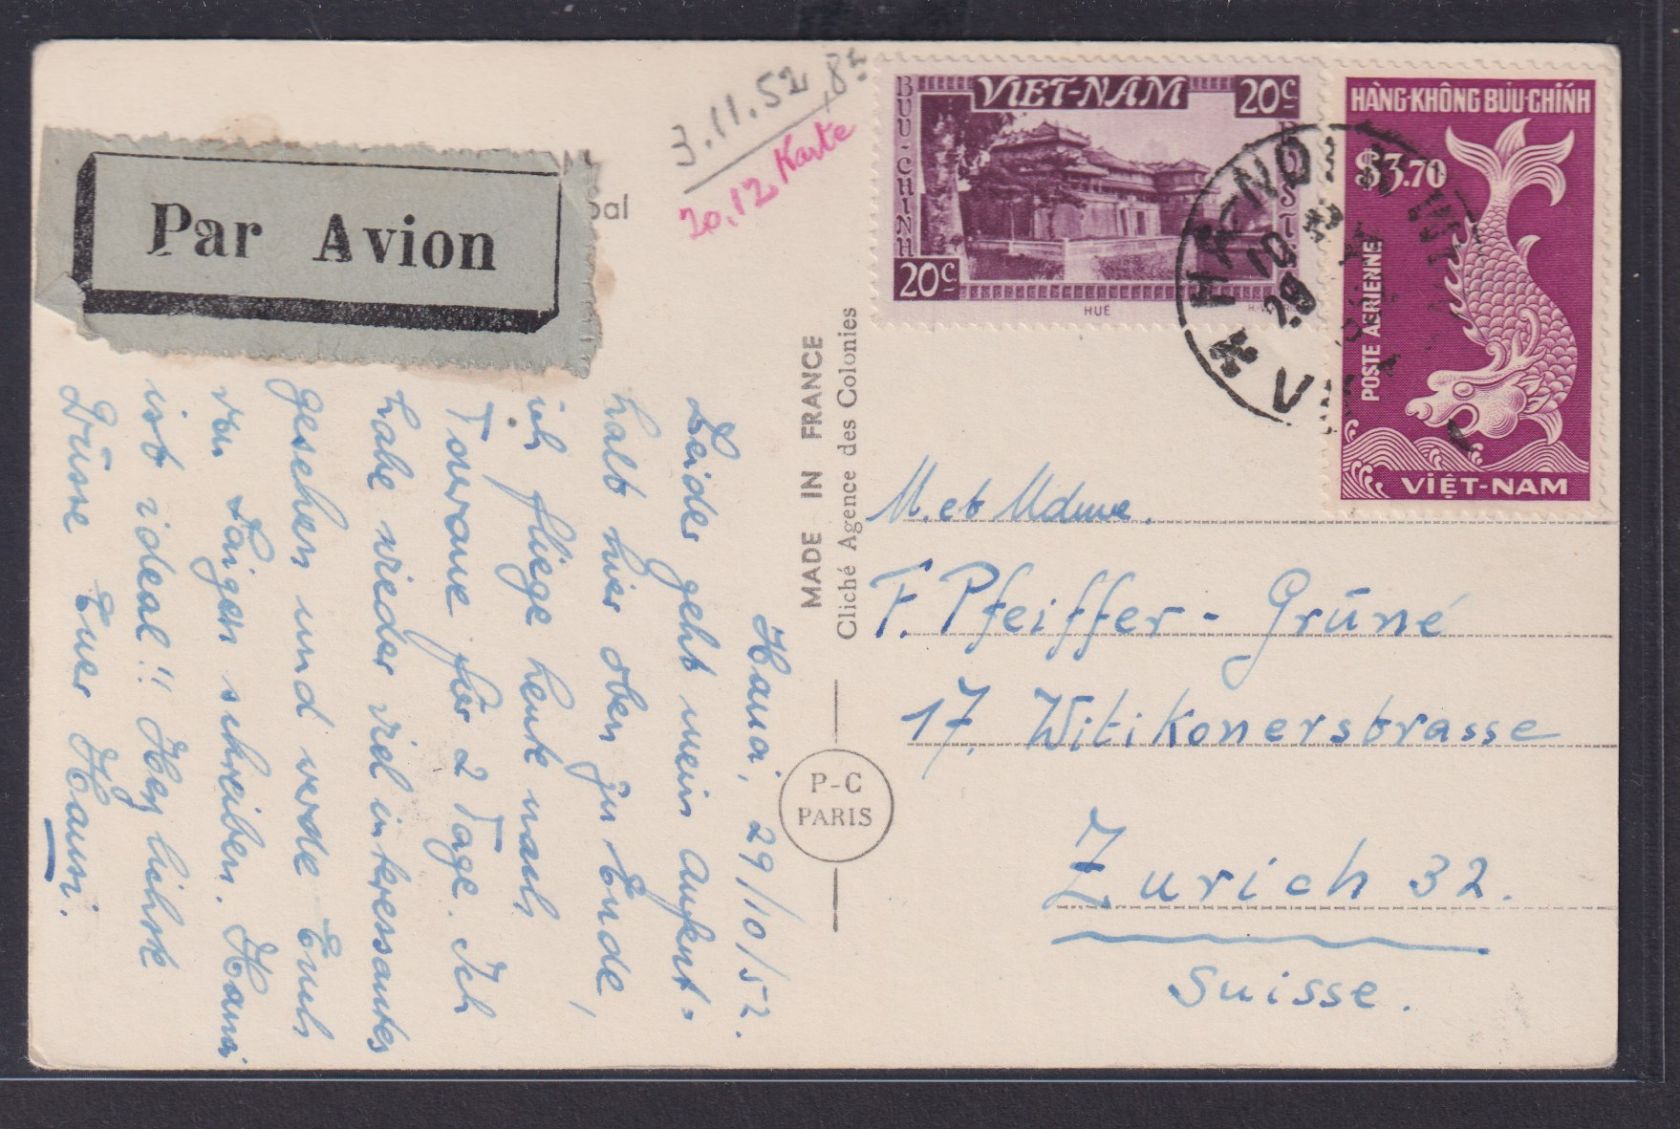 Par Avion
pal
3.11.52, 8h
20.12 Karte
VIET-NAM
20c
BUU-CHINH
POSTES
20c
HUÊ
HÀNG-KHÔNG BƯU-CHÍNH
$3.70
POSTE AÉRIENNE
VIỆT-NAM
HA-NOI
10
29
MADE IN FRANCE
Cliché Agence des Colonies
P-C
PARIS
Hanoi, 29/10/52.
Leider geht mein Aufent=
halt hier oben zu Ende,
ich fliege heute nach
Tourane für 2 Tage. Ich
habe wieder viel interessantes
gesehen und werde Euch
von Saigon schreiben. Hanoi
ist ideal!! Herzlichste
Grüsse Euer Hansi.
M. et Mdme.
F. Pfeiffer - Grüné
17, Witikonerstrasse
Zurich 32.
Suisse.